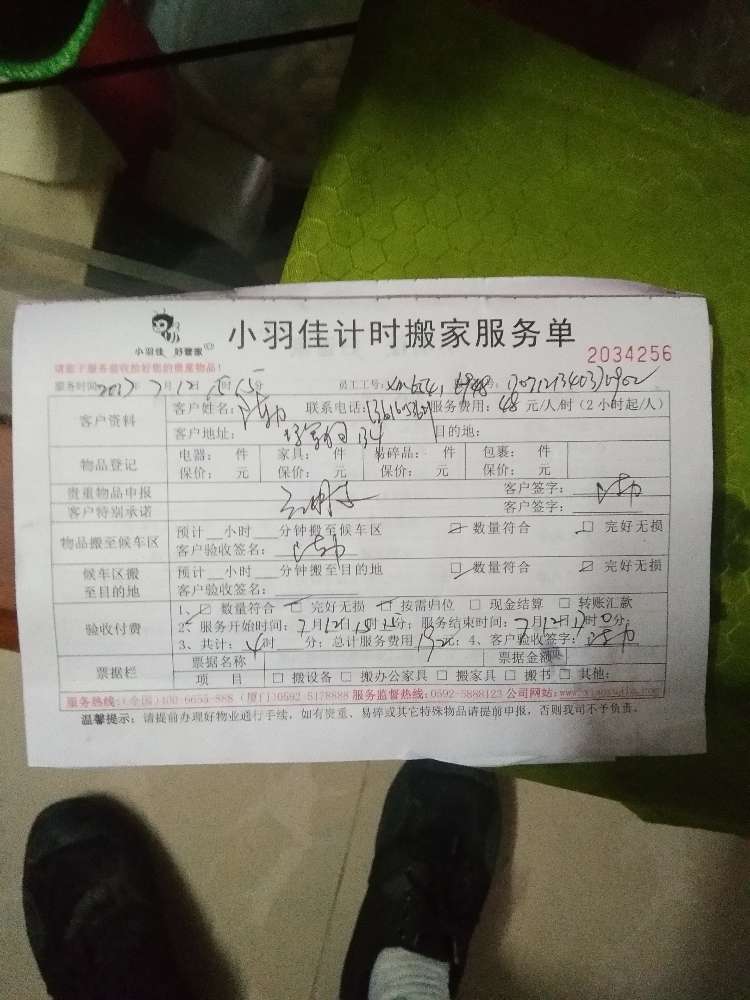 小羽佳 好管家
小羽佳计时搬家服务单
2034256
请您于服务前收拾好您的贵重物品！
服务时间2017年7月12日 时 分 员工工号：
客户资料 客户姓名： 联系电话： 服务费用：48元/人/时（2小时起/人）
客户地址： 134 目的地：
物品登记 电器： 件 家具： 件 易碎品： 件 包裹： 件
保价： 元 保价： 元 保价： 元 保价： 元
贵重物品申报 客户签字：
客户特别承诺 客户签字：
物品搬至候车区 预计__小时___分钟搬至候车区 数量符合 完好无损
客户验收签名：
候车区搬至目的地 预计__小时___分钟搬至目的地 数量符合 完好无损
客户验收签名：
验收付费 1、 数量符合 完好无损 按需归位 现金结算 转账汇款
2、服务开始时间：7月12日 时 分；服务结束时间：7月12日 时0分；
3、共计：4时 分；总计服务费用 元；4、客户验收签字：
票据栏 票据名称 票据金额
项 目 搬设备 搬办公家具 搬家具 搬书 其他：
服务热线：(全国)400-6655-888 (厦门)0592-5178888 服务监督热线：0592-5888123 公司网站：www.xiaoyujia.com
温馨提示：请提前办理好物业通行手续，如有贵重、易碎或其它特殊物品请提前申报，否则我司不予负责。